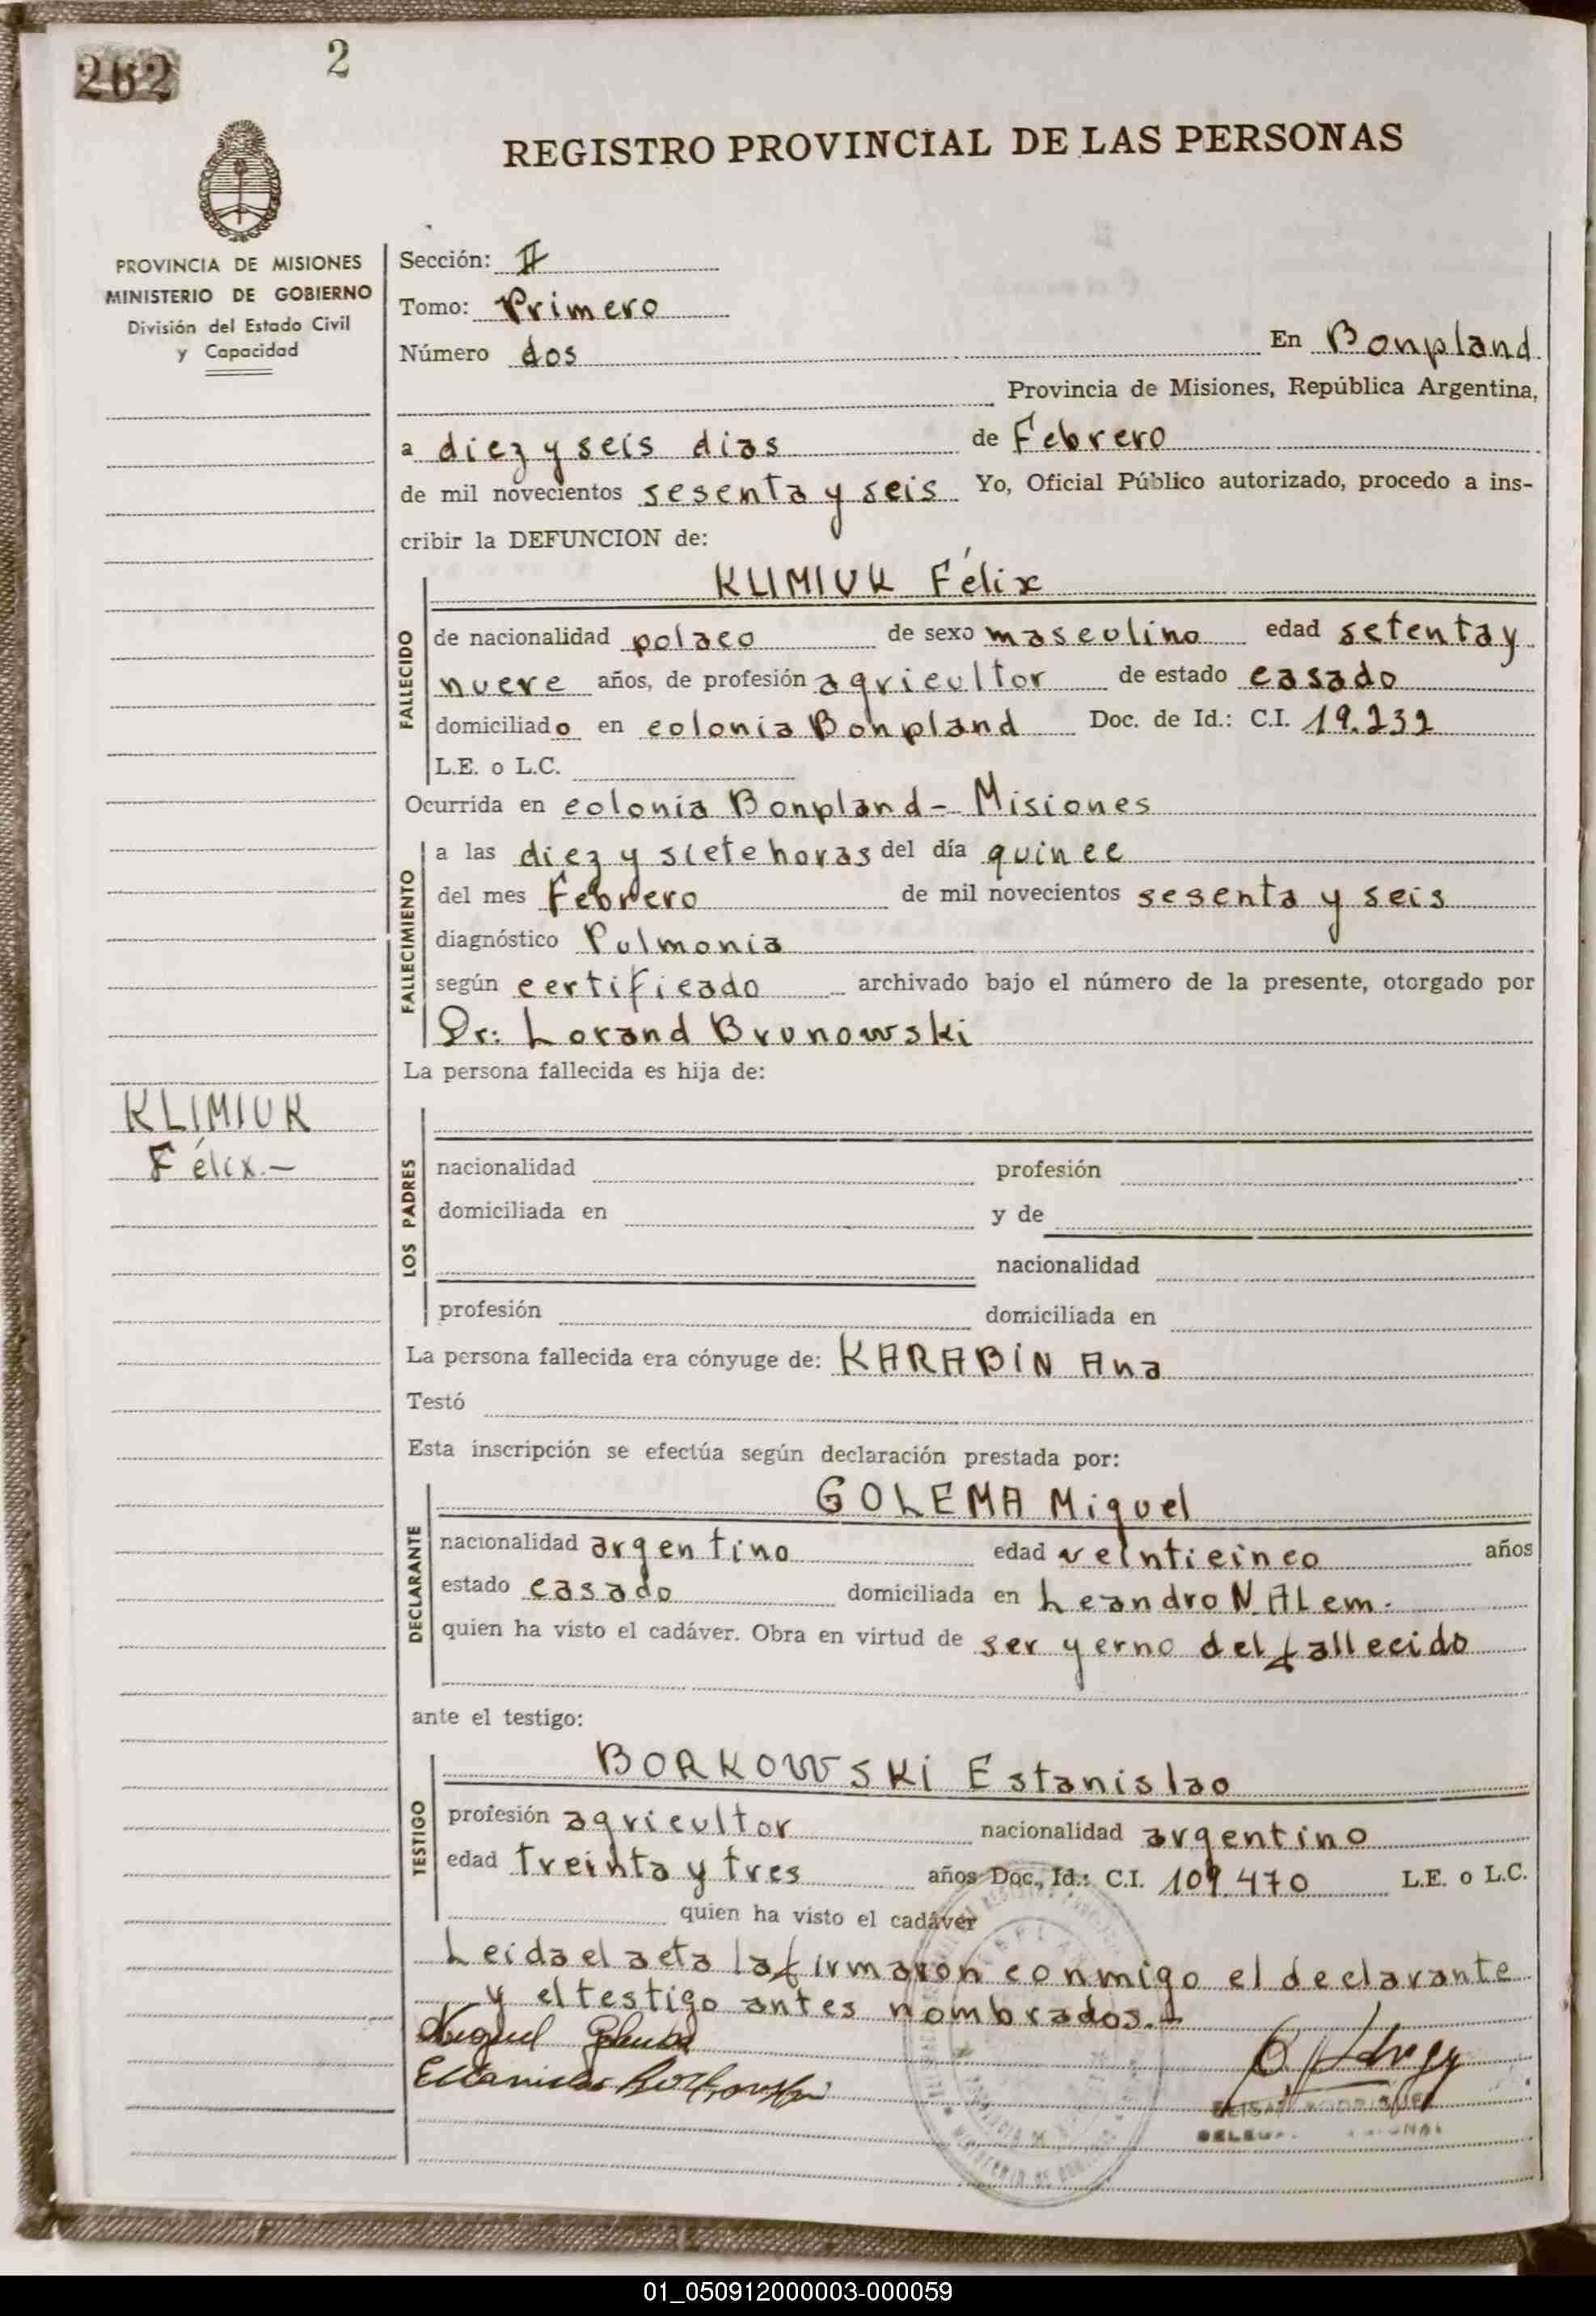 262
2
REGISTRO PROVINCIAL DE LAS PERSONAS
PROVINCIA DE MISIONES
MINISTERIO DE GOBIERNO
División del Estado Civil
y Capacidad
Sección: II
Tomo: Primero
Número dos En Bonpland
Provincia de Misiones, República Argentina,
a diez y seis dias de Febrero
de mil novecientos sesenta y seis Yo, Oficial Público autorizado, procedo a ins-
cribir la DEFUNCION de:
FALLECIDO
KLIMIUK Félix
de nacionalidad polaco de sexo masculino edad setenta y
nueve años, de profesión agricultor de estado casado
domiciliado en colonia Bonpland Doc. de Id.: C.I. 19.232
L.E. o L.C.
Ocurrida en colonia Bonpland - Misiones
FALLECIMIENTO
a las diez y siete horas del día quince
del mes Febrero de mil novecientos sesenta y seis
diagnóstico Pulmonia
según certificado archivado bajo el número de la presente, otorgado por
Dr: Lorand Brunowski
La persona fallecida es hija de:
KLIMIUK
Félix.-
LOS PADRES
nacionalidad profesión
domiciliada en y de
nacionalidad
profesión domiciliada en
La persona fallecida era cónyuge de: KARABIN Ana
Testó
Esta inscripción se efectúa según declaración prestada por:
DECLARANTE
GOLEMA Miguel
nacionalidad argentino edad veinticinco años
estado casado domiciliada en Leandro N. ALem.
quien ha visto el cadáver. Obra en virtud de ser yerno del fallecido
ante el testigo:
TESTIGO
BORKOWSKI Estanislao
profesión agricultor nacionalidad argentino
edad treinta y tres años Doc. Id.: C.I. 109.470 L.E. o L.C.
quien ha visto el cadáver
Leida el acta la firmaron conmigo el declarante
y el testigo antes nombrados.-
Miguel Golema
Estanislao Borkowski
01_050912000003-000059